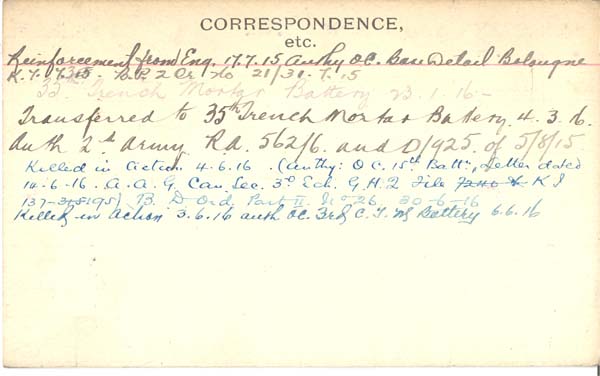 CORRESPONDENCE,
etc.
Reinforcement from Eng. 17.7.15 Authy O.C. Base Detail Bolougne
B.P. 2 Or. No 21/31.7.15
35th Trench Mortar Battery 23.1.16 -
Transferred to 35th Trench Mortar Battery 4.3.16.
Auth 2nd Army R.A. 562/6. and D/925. of 5/8/15
Killed in Action 4-6-16 (Authy: O.C. 15th Battn, Letter dated
14-6-16. A.A.G. Can. Sec. 3rd Ech. G.H.Q. File K I
B. D. Ord. Part II. No 26. 30-6-16
Killed in Action 3.6.16 auth OC. 3rd C.T.M Battery 6.6.16